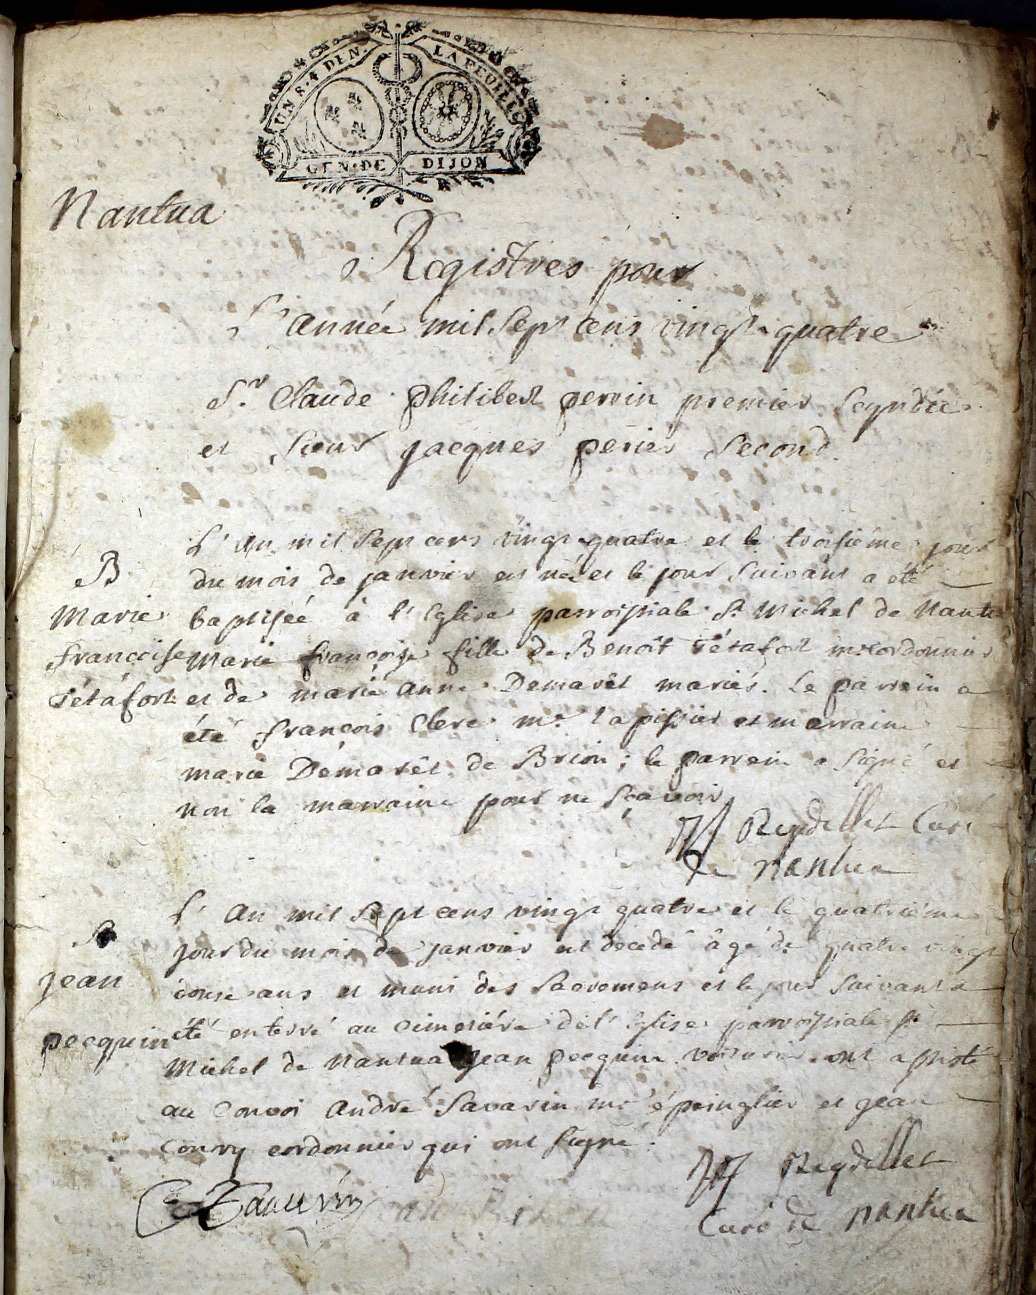 UN S. 4 DEN. LA FEUILLE
GEN. DE DIJON
Nantua
Registres pour
L'année mil sept cens vingt quatre
Sr. Claude philibert perrin premier scyndic
et sieur jacques periés second.
L'an mil sept cens vingt quatre et le troisiéme jour
B. du mois de janvier est née et le jour suivant a été
Marie baptisée à l'Eglise parroissiale St. Michel de Nantua
françoise Marie françoise fille de Benoît Tétafort me cordonnier
Tétafort et de marie anne Demarêt mariés. Le parrein a
été françois Clerc me. Tapissier et marraine
marie Demarêt de Brion; le parrein a signé et
non la marraine pour ne sçavoir
Reydellet Curé
de nantua
L'an mil sept cens vingt quatre et le quatriéme
jour du mois de janvier est decedé âgé de quatre vingt
jean ans et muni des sacremens et le jour suivant a
pecquin été enterré au cimetiére de l'Eglise parroissiale St
Michel de Nantua jean pecquin voiturier ont assisté
au convoi André Savarin me épinglier et jean
cordonnier qui ont signé.
Reydellet
Savarin
Curé de nantua